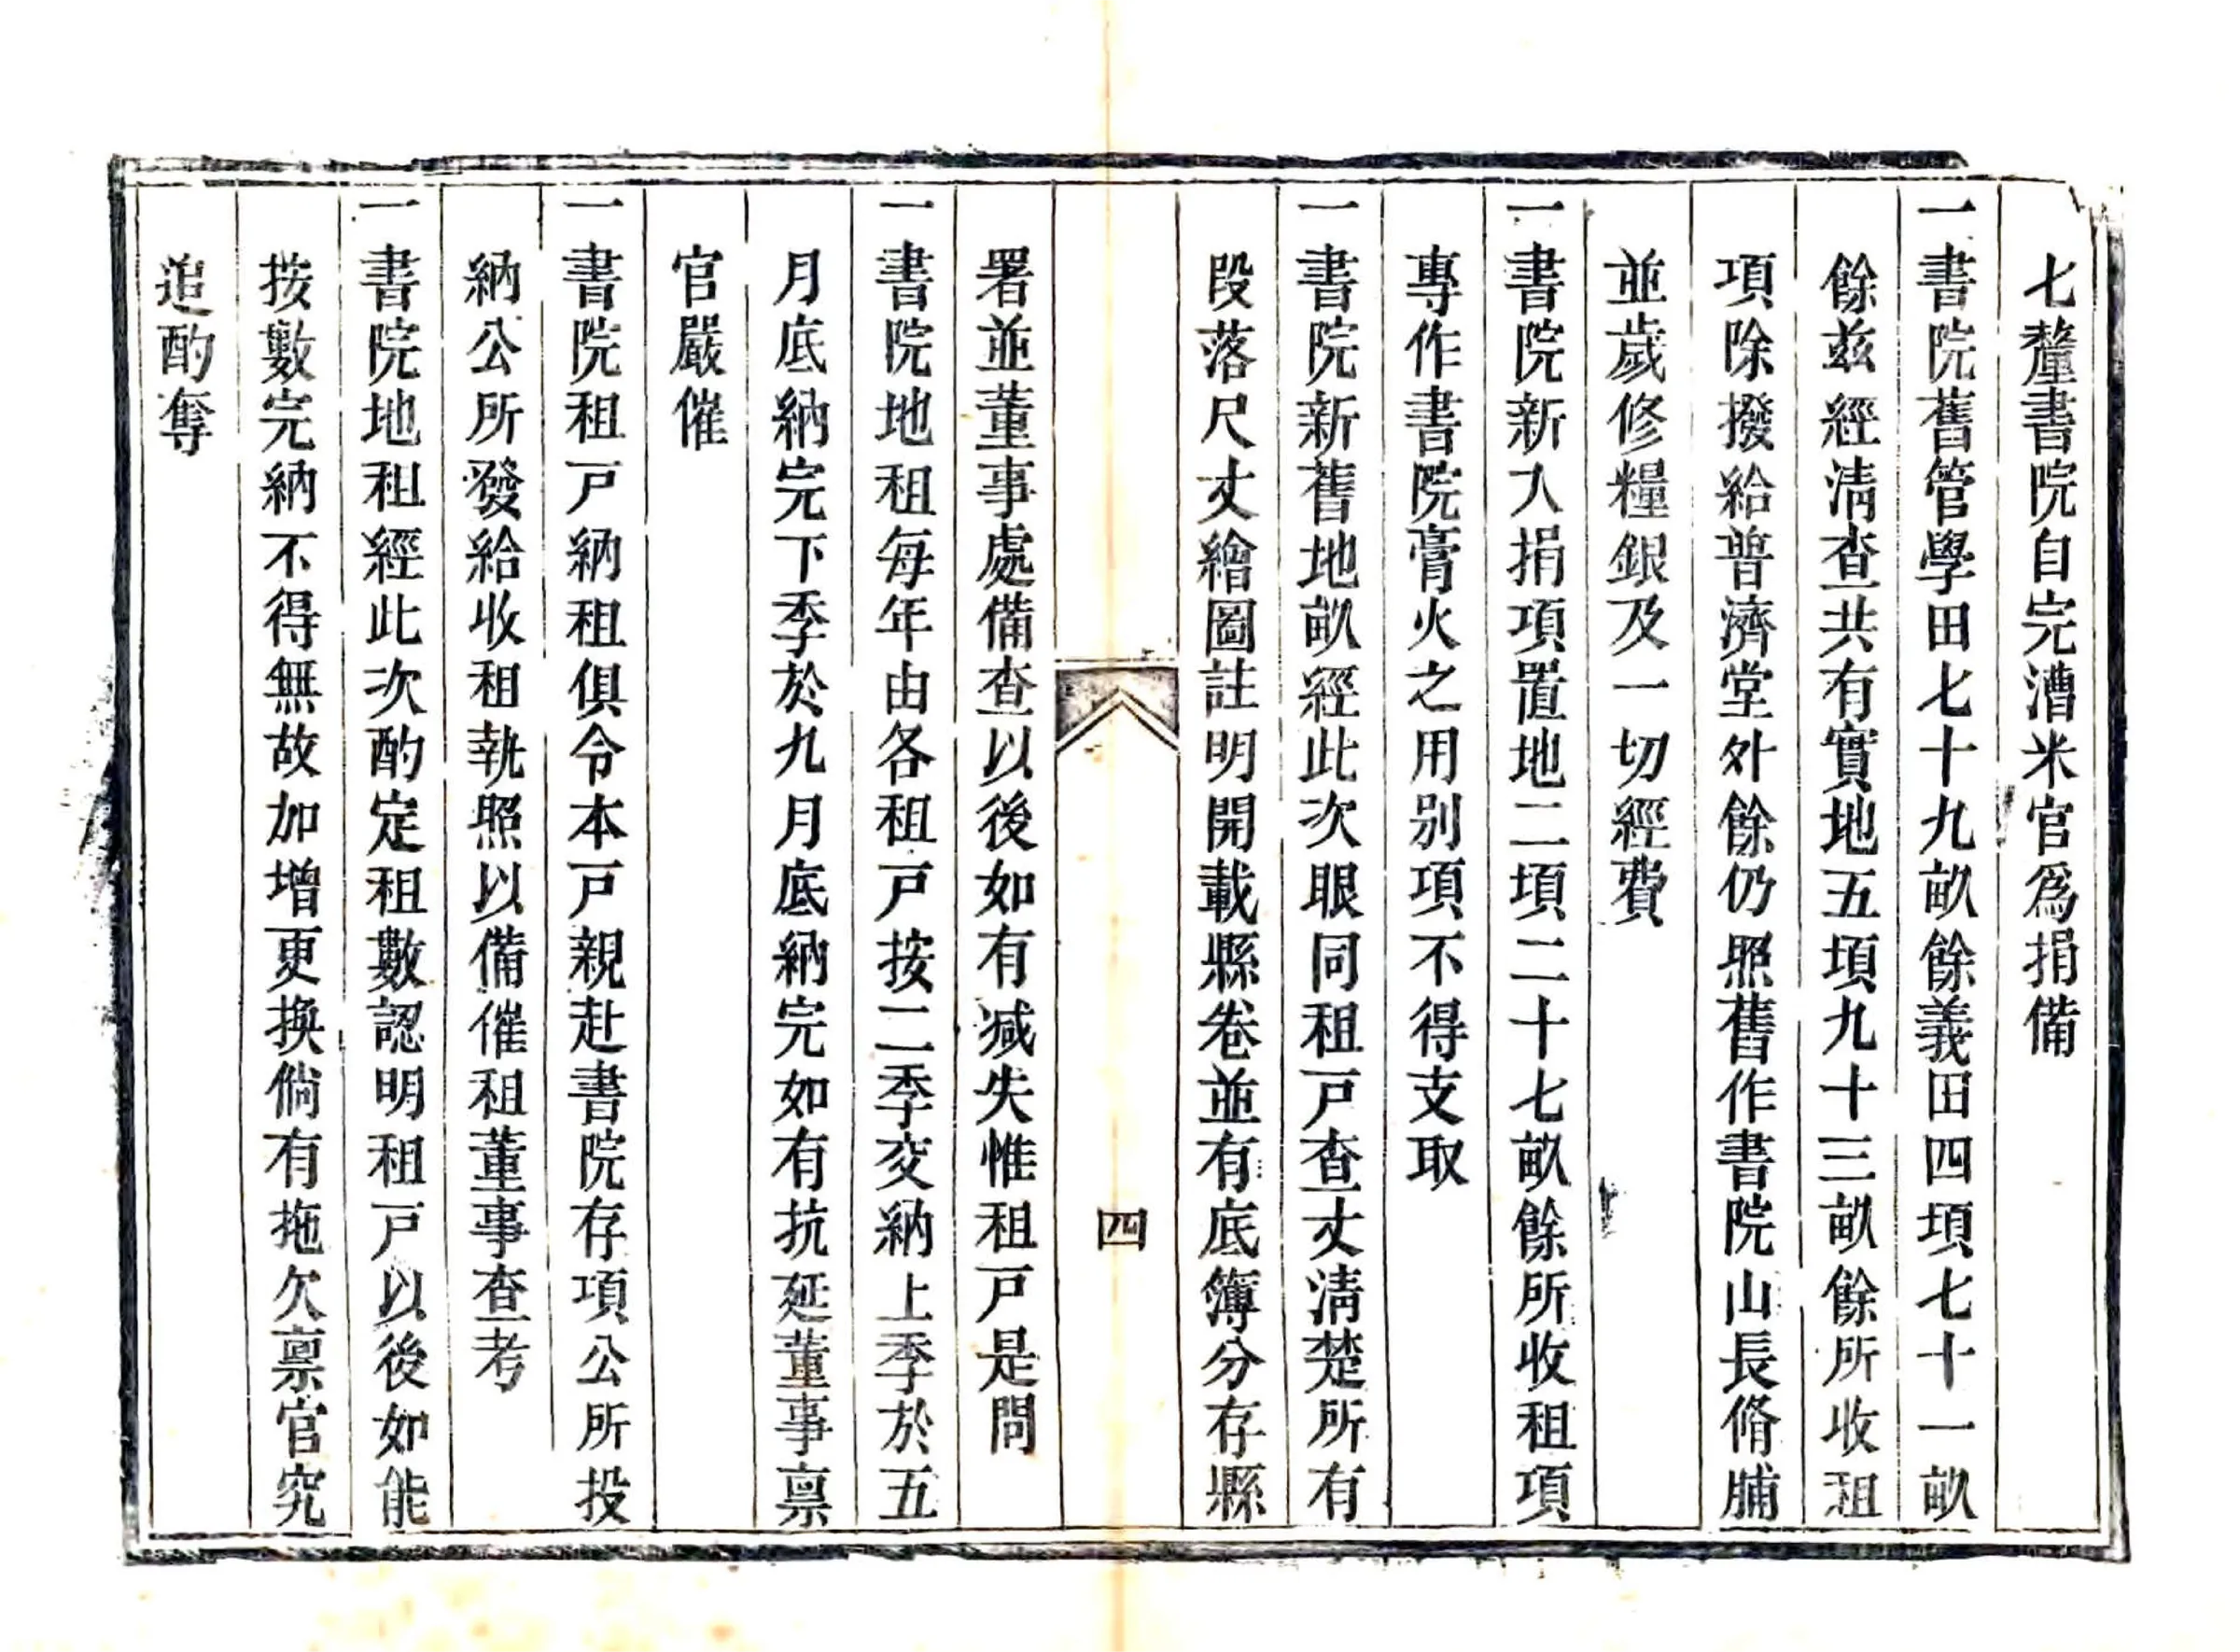 七釐書院自完漕米官爲捐備
一書院舊管學田七十九畝餘義田四項七十一畝
餘兹經淸查共有實地五項九十三畝餘所收租
項除撥給普濟堂外餘仍照舊作書院山長脩脯
並歲修糧銀及一切經費
一書院新入捐項置地二項二十七畝餘所收租項
專作書院膏火之用别項不得支取
一書院新舊地畝經此次眼同租戸查丈淸楚所有
段落尺丈繪圖註明開載縣卷並有底簿分存縣
四
署並董事處備查以後如有减失惟租戸是問
一書院地租每年由各租戸按二季交納上季於五
月底納完下季於九月底納完如有抗延董事禀
官嚴催
一書院租戸納租俱令本戸親赴書院存項公所投
納公所發給收租執照以備催租董事查考
一書院地租經此次酌定租數認明租戸以後如能
按數完納不得無故加增更換倘有拖欠禀官究
追酌奪